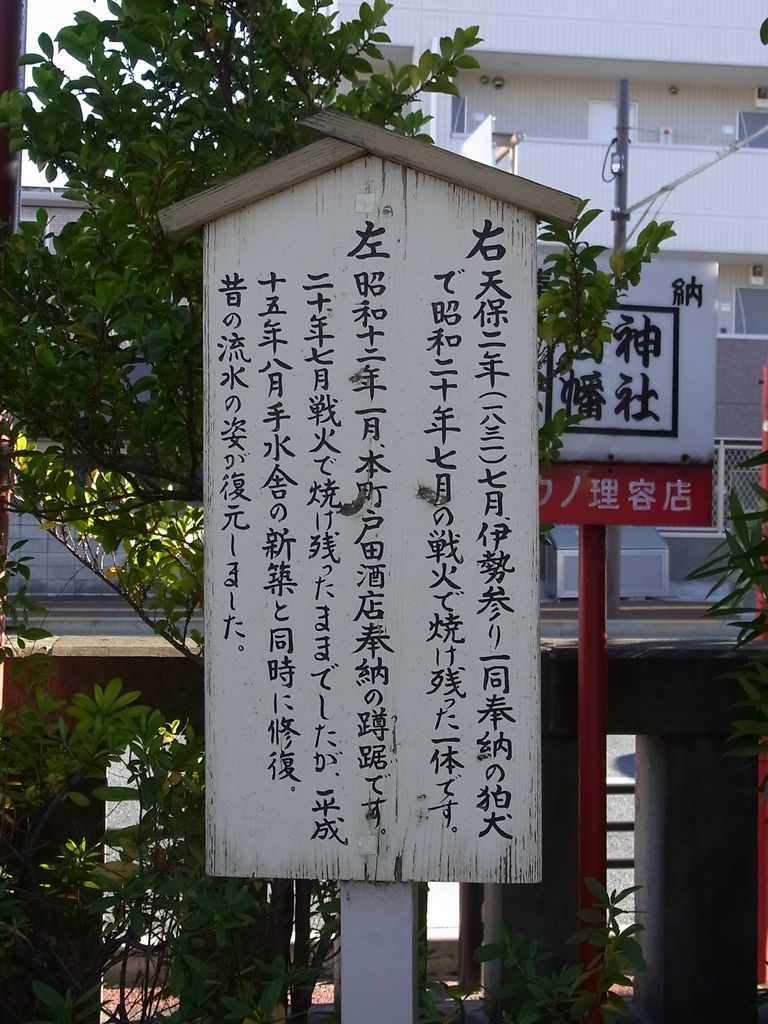 右 天保二年(一八三一)七月伊勢参り一同奉納の狛犬
で昭和二十年七月の戦火で焼け残った一体です。
左 昭和十二年一月、本町戸田酒店奉納の蹲踞です。
二十年七月戦火で焼け残ったままでしたが、平成
十五年八月手水舎の新築と同時に修復。
昔の流水の姿が復元しました。
納
神社
幡
ウノ理容店